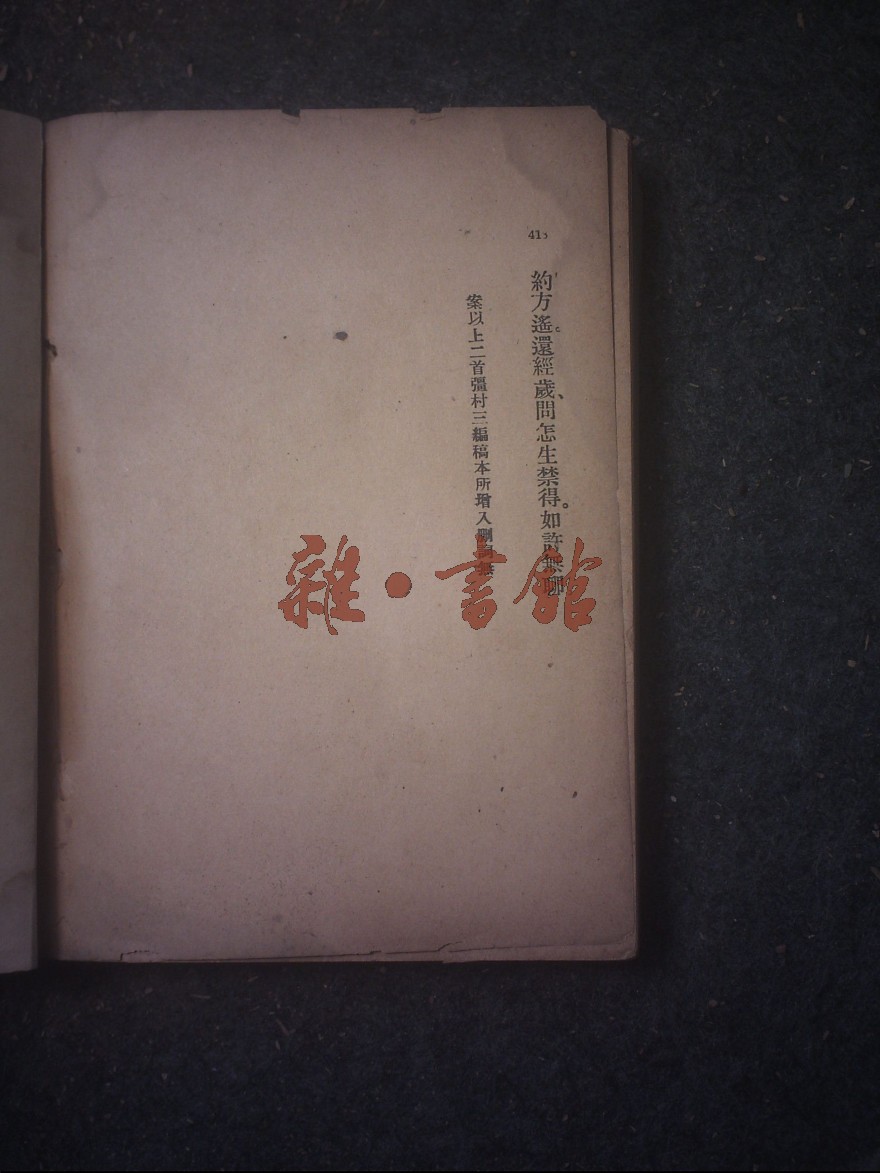 約方遙。還經歲、問怎生禁得。如許無聊
案以上二首彊村三編稿本所增入刪
雜·書館